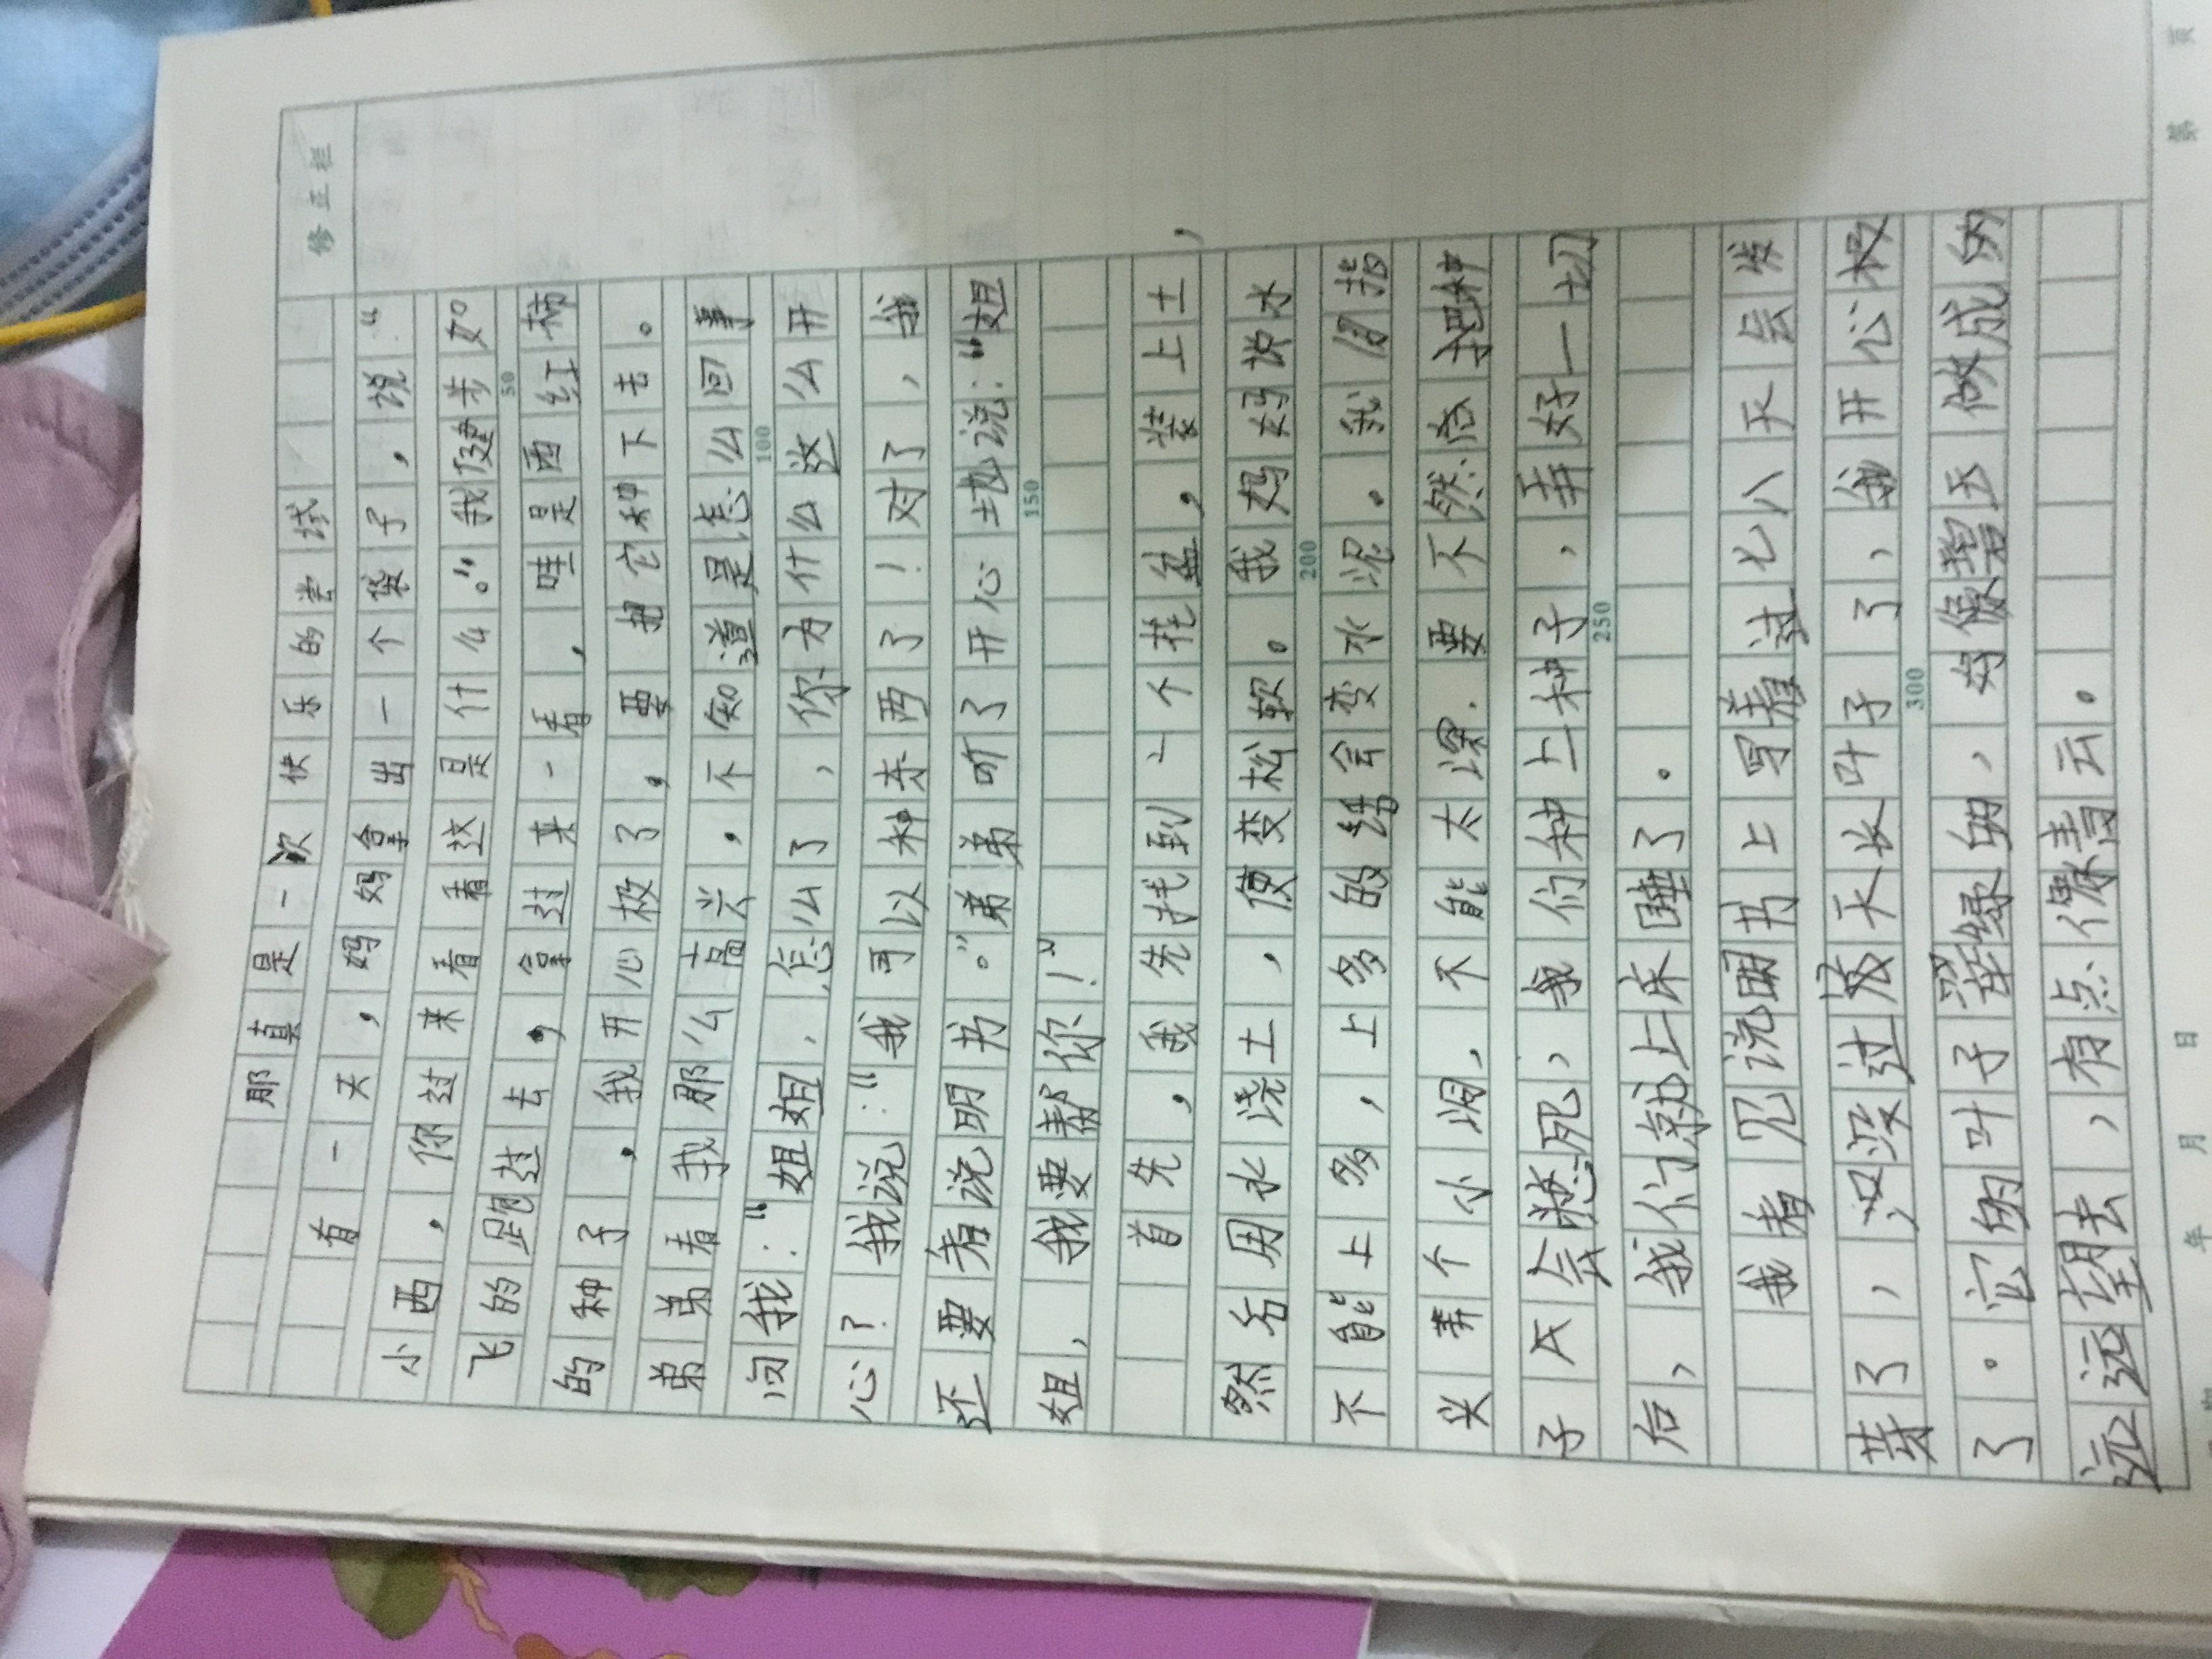 修正栏
那真是一次快乐的尝试
有一天，妈妈拿出一个袋子，说：“
小西，你过来看看这是什么。”我健步如
飞的跑过去，拿过来一看，哇是西红柿
的种子，我开心极了，要把它种下去。
弟弟看我那么高兴，不知道是怎么回事
问我：“姐姐，怎么了，你为什么这么开
心？我说：“我可以种东西了！对了，我
还要看说明书。”弟弟听了开心地说：“姐
姐，我要帮你！”
首先，我先找到一个花盆，装上土，
然后用水浇土，使变松软。我妈妈说水
不能上多，上多的话会变水泥。我用指
尖弄个小洞，不能太深.要不然会把种
子会憋死，我们种上种子，弄好一切
后，我们就上床睡了。
我看见说明书上写着过七八天会发
芽了，没过友天长叶子了，我开心极
了。它的叶子翠绿的，好像碧玉做成的
远远望去，有点像青云。
50
100
150
200
250
300
年 月 日
第 页